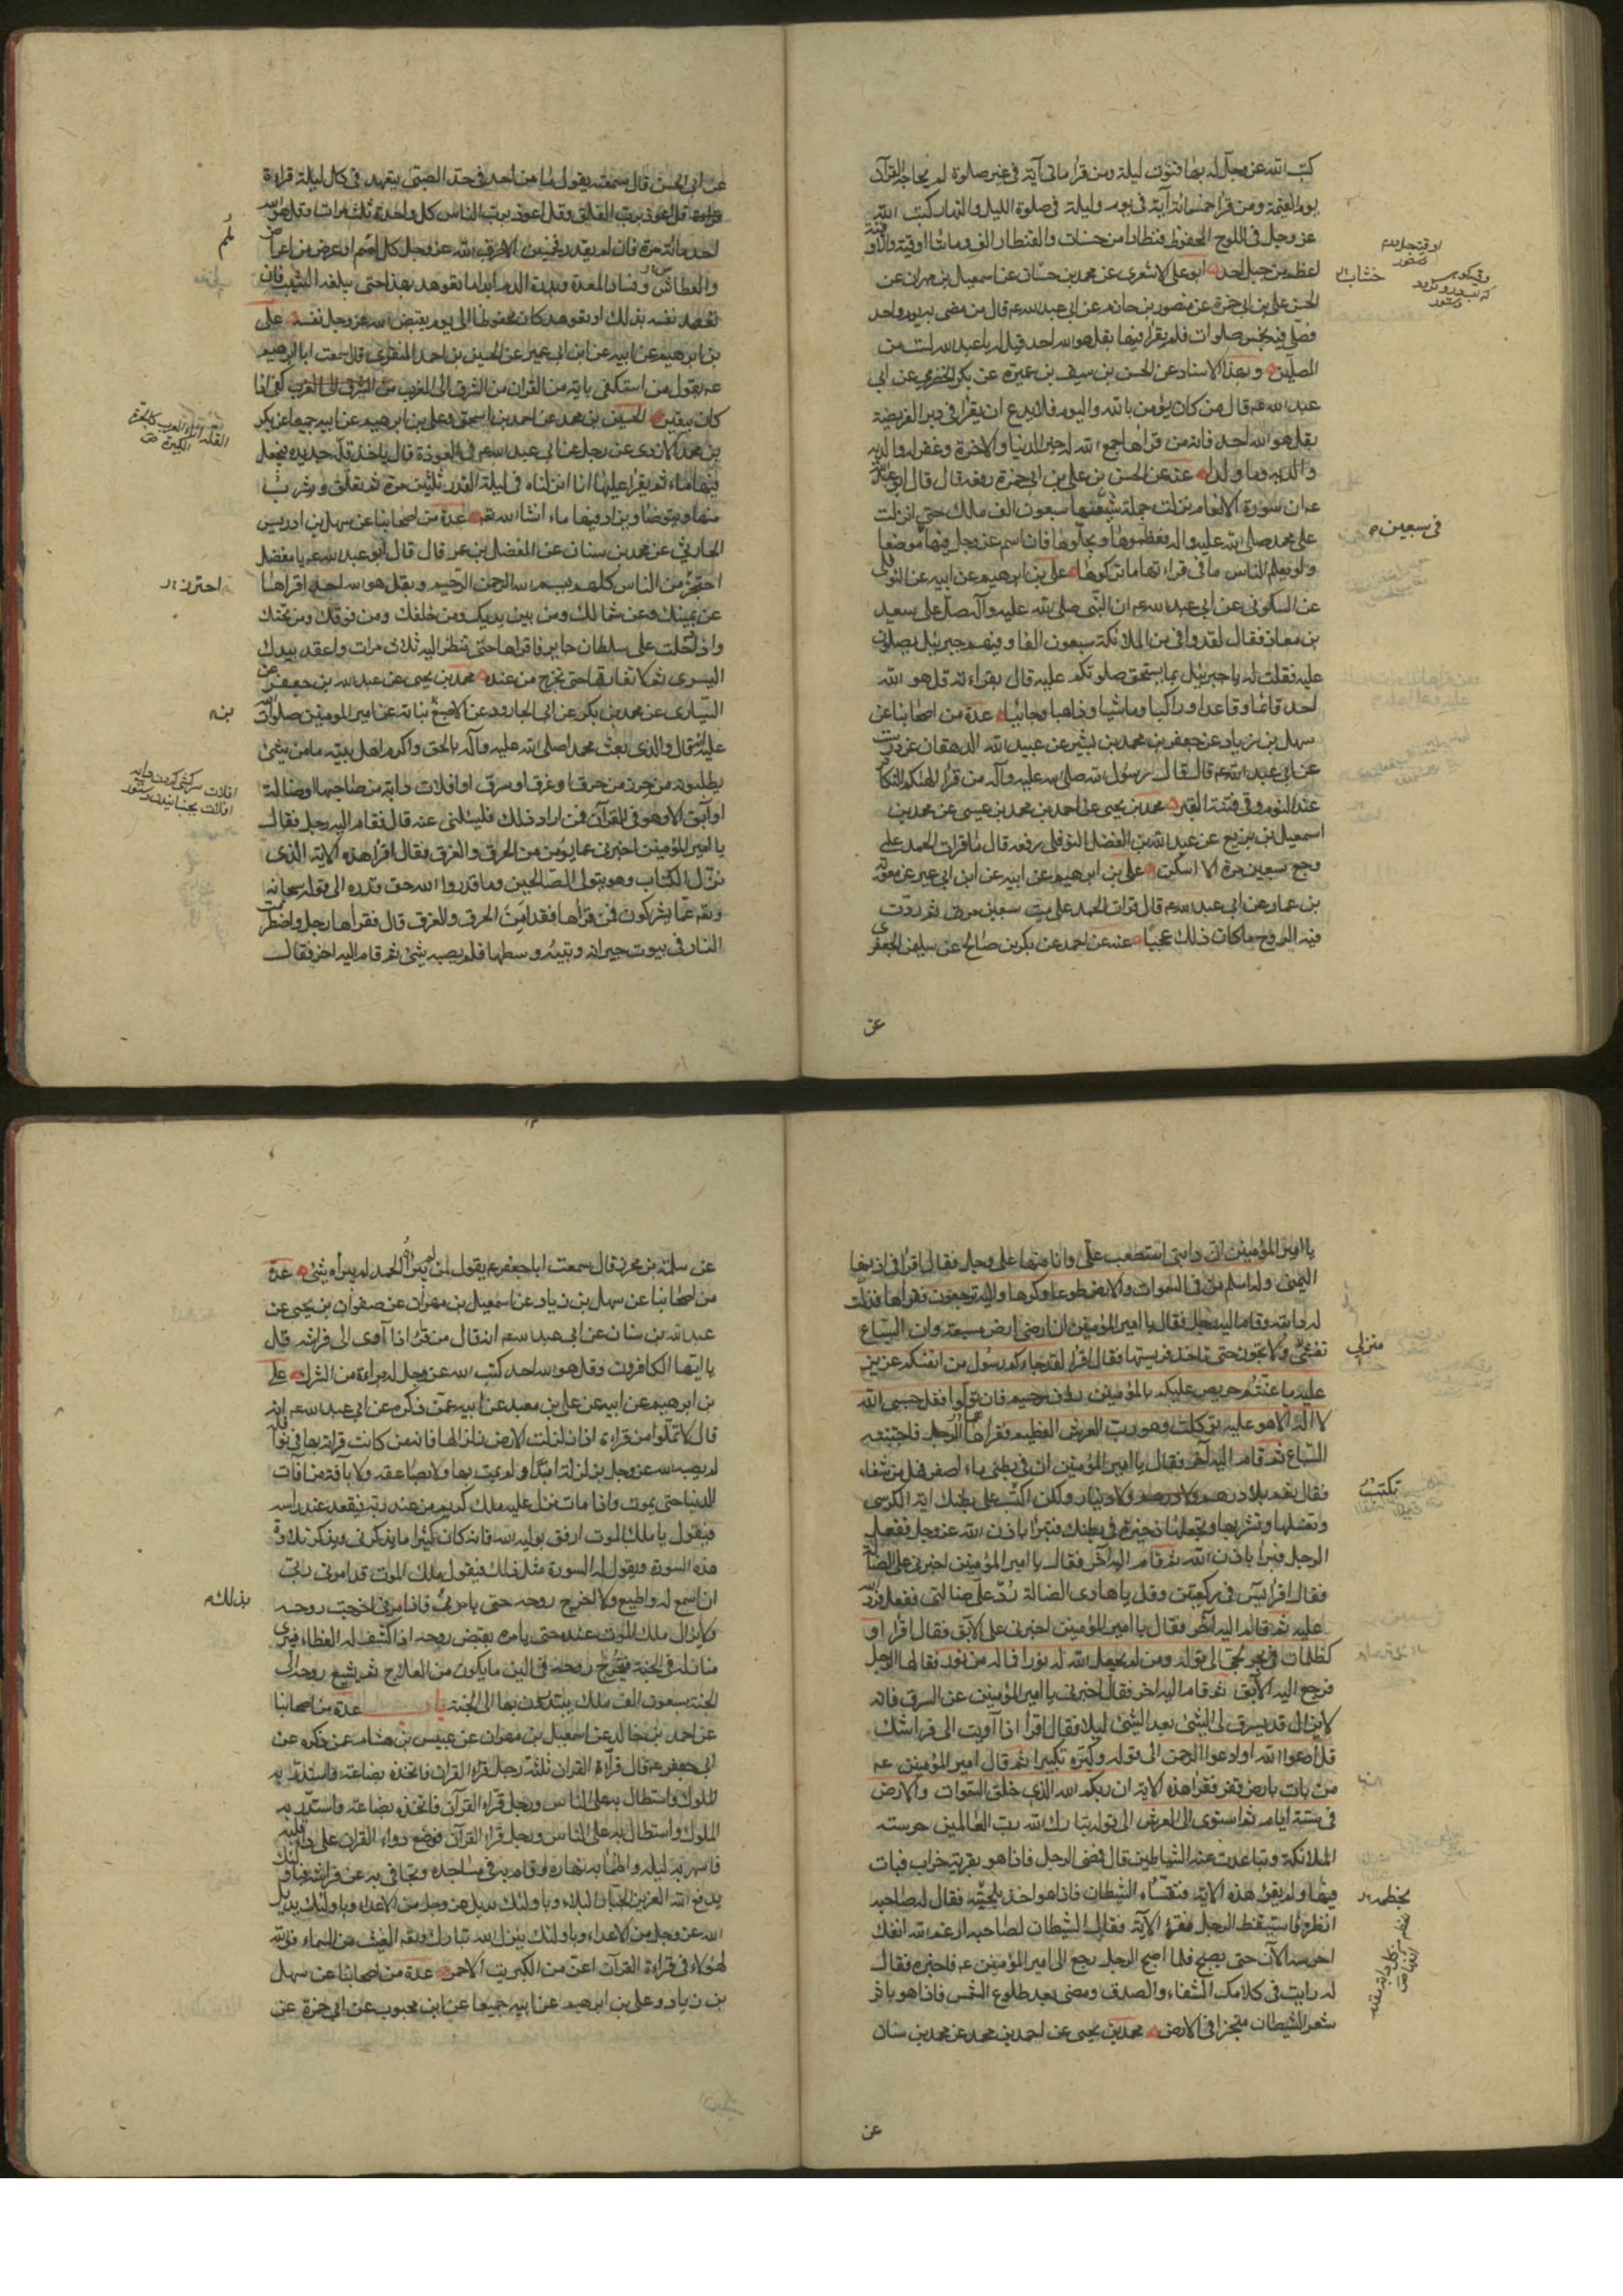 كتب الله عز وجل له بها قنوت ليلة ومن قرأ مائتي آية في غير صلوة لم يحاجه القرآن
يوم القيمة ومن قرأ خمسمائة آية في يوم وليلة في صلوة الليل والنهار كتب الله
عز وجل في اللوح المحفوظ قنطارا من حسنات والقنطار الف ومائتا اوقية والاوقية
اعظم من جبل احد ابو علي الاشعري عن محمد بن حسان عن اسمعيل بن مهران عن
الحسن بن علي بن ابي حمزة عن منصور بن حازم عن ابي عبد الله ع قال من مضى به يوم واحد
فصلى فيه بخمس صلوات فلم يقرأ فيها بقل هو الله احد قيل له يا عبد الله لست من
المصلين وبهذا الاسناد عن الحسن بن سيف بن عميرة عن بكر الحضرمي عن ابي
عبد الله ع قال من كان يؤمن بالله واليوم فلا يدع ان يقرأ في دبر الفريضة
بقل هو الله احد فانه من قرأها جمع الله له خير الدنيا والاخرة وغفر له ولوالديه
وما ولدا عنه عن الحسن بن علي بن ابي حمزة رفعه قال قال ابو عبد الله
ع ان سورة الانعام نزلت جملة شيعها سبعون الف ملك حتى انزلت
على محمد صلى الله عليه واله فعظموها وبجلوها فان اسم عز وجل فيها موضعا
ولو يعلم الناس ما في قراءتها ما تركوها علي بن ابرهيم عن ابيه عن النوفلي
عن السكوني عن ابي عبد الله ع ان النبي صلى الله عليه وآله صلى على سعد
بن معاذ فقال لقد وافى من الملائكة سبعون الفا وفيهم جبرئيل يصلون
عليه فقلت له يا جبرئيل بما يستحق صلوتكم عليه قال بقراءته قل هو الله
احد قائما وقاعدا وراكبا وماشيا وذاهبا وجائيا عدة من اصحابنا عن
سهل بن زياد عن جعفر بن محمد بن بشير عن عبيد الله الدهقان عن درست
عن ابي عبد الله ع قال قال رسول الله صلى الله عليه وآله من قرأ الهيكم التكاثر
عند النوم وقي فتنة القبر محمد بن يحيى عن احمد بن محمد بن عيسى عن محمد بن
اسمعيل بن بزيع عن عبد الله بن الفضل النوفلي رفعه قال ما قرأت الحمد على
وجع سبعين مرة الا اسكن علي بن ابرهيم عن ابيه عن ابن ابي عمير عن معوية
بن عمار عن ابي عبد الله ع قال لو قرأت الحمد على ميت سبعين مرة ثم ردت
فيه الروح ما كان ذلك عجبا عنه عن احمد عن بكر بن صالح عن سليمن الجعفري
عن
خشاب
في سبعين
عن ابي الحسن قال سمعته يقول ما من احد في حد الصبى يتعهد في كل ليلة قراءة
قل اعوذ برب الفلق وقل اعوذ برب الناس كل واحدة ثلث مرات وقل هو الله
احد مائة مرة فان لم يقدر فخمسين الا صرف الله عز وجل كل لمم او عرض من اعراض
والعطاش وفساد المعدة ابدا ما تعوهد بهذا حتى يبلغه الشيب فان
تعهد نفسه بذلك او تعوهد كان محفوظا الى يوم يقبض الله عز وجل نفسه علي
بن ابرهيم عن ابيه عن ابن ابي عمير عن الحسين بن احمد المنقري قال سمعت ابا ابرهيم
ع يقول من استكفى باية من القران من الشرق الى الغرب كفي اذا
كان بيقين الحسين بن محمد عن احمد بن اسحق وعلي بن ابرهيم عن ابيه جميعا عن بكر
بن محمد الازدي عن رجل عن ابي عبد الله ع في العوذة قال تاخذ قلة جديدة فتجعل
فيها ماء ثم يقرأ عليها انا انزلناه في ليلة القدر ثلثين مرة ثم تعلق ويشرب
منها ويتوضا ويزاد فيها ماء انشا الله تع عدة من اصحابنا عن سهل بن ادريس
الحارثي عن محمد بن سنان عن المفضل بن عمر قال قال ابو عبد الله ع يا مفضل
احتجز من الناس كلهم ببسم الله الرحمن الرحيم وبقل هو الله احد اقرأها
عن يمينك وعن شمالك ومن بين يديك ومن خلفك ومن فوقك ومن تحتك
واذا دخلت على سلطان جاير فاقرأها حتى تنظر اليه ثلاث مرات واعقد بيدك
اليسرى ثم لا تفارقها حتى تخرج من عنده محمد بن يحيى عن عبد الله بن جعفر عن
السياري عن محمد بن بكر عن ابي الجارود عن الاصبغ نباتة عن امير المومنين صلوات
عليه قال والذي بعث محمدا صلى الله عليه وآله بالحق واكرم اهل بيته ما من شيئ
يطلبونه من حرز من حرق او غرق او سرق او افلات دابة من صاحبها او ضالة
او آبق الا وهو في القرآن فمن اراد ذلك فليسئلني عنه قال فقام اليه رجل فقال
يا امير المؤمنين اخبرني عما يؤمن من الحرق والغرق فقال اقرأ هذه الاية الذي
نزل الكتاب وهو يتولى الصالحين وما قدروا الله حق قدره الى قوله سبحانه
وتعالى عما يشركون فمن قرأها فقد امن من الحرق والغرق قال فقرأها رجل واضطرمت
النار في بيوت جيرانه وبيته وسطها فلم يصبه شيئ ثم قام اليه اخر فقال
احترز
بن
يا امير المؤمنين ان دابتي استصعبت علي وانا منها على وجل فقال اقرأ في اذنها
اليمنى وله اسلم من في السموات والارض طوعا وكرها واليه ترجعون فقرأها فذلت
له دابته وقام اليه رجل فقال يا امير المؤمنين ان ارضي ارض مسبعة وان السباع
تغشى ولا تجوز حتى تاخذ فريستها فقال اقرأ لقد جاءكم رسول من انفسكم عزيز
عليه ما عنتم حريص عليكم بالمؤمنين رؤف رحيم فان تولوا فقل حسبي الله
لا اله الا هو عليه توكلت وهو رب العرش العظيم فقرأهما الرجل فاجتنبته
السباع ثم قام اليه آخر فقال يا امير المؤمنين ان في بطني ماء اصفر فهل من شفاء
فقال نعم بلا درهم ولا دينار ولكن اكتب على بطنك اية الكرسي
وتغسلها وتشربها وتجعلها ذخيرة في بطنك فتبرأ باذن الله عز وجل ففعل
الرجل فبرأ باذن الله ثم قام اليه آخر فقال يا امير المؤمنين اخبرني على الضالة
فقال اقرأ يس في ركعتين وقل يا هادي الضالة رد علي ضالتي ففعل فرد الله
عليه ثم قام اليه آخر فقال يا امير المؤمنين اخبرني على الابق فقال اقرأ او
كظلمات في بحر لجي الى قوله ومن لم يجعل الله له نورا فما له من نور فقالها الرجل
فرجع اليه الابق ثم قام اليه اخر فقال اخبرني يا امير المؤمنين عن السرق فانه
لا يزال قد يسرق لي الشيئ بعد الشيئ ليلا فقال اقرأ اذا آويت الى فراشك
قل ادعوا الله او ادعوا الرحمن الى قوله وكبره تكبيرا ثم قال امير المؤمنين ع
من بات بارض قفر فقرأ هذه الاية ان ربكم الله الذي خلق السموات والارض
في ستة ايام ثم استوى على العرش الى قوله تبارك الله رب العالمين حرسته
الملائكة وتباعدت عنه الشياطين قال فمضى الرجل فاذا هو بقرية خراب فبات
فيها ولم يقرء هذه الاية فتغشاه الشيطان فاذا هو اخذ بلحيته فقال له صاحبه
انظره فاستيقظ الرجل فقرأ الآية فقال الشيطان لصاحبه ارغم الله انفك
احرسه الآن حتى يصبح فلما اصبح الرجل رجع الى امير المؤمنين ع فاخبره فقال
له رايت في كلامك الشفاء والصدق ومضى بعد طلوع الشمس فاذا هو باثر
شعر الشيطان منجزا في الارض محمد بن يحيى عن احمد بن محمد عن محمد بن سنان
عن
منزلي
عن سلمة بن محرز قال سمعت ابا جعفر ع يقول من لم يبرأه الحمد لم يبرأه شيئ عدة
من اصحابنا عن سهل بن زياد عن اسمعيل بن مهران عن صفوان بن يحيى عن
عبد الله بن سنان عن ابي عبد الله ع انه قال من قرأ اذا آوى الى فراشه قل
يا ايها الكافرون وقل هو الله احد كتب الله عز وجل له براءة من الشرك علي
بن ابرهيم عن ابيه عن علي بن معبد عن ابيه عمن ذكره عن ابي عبد الله ع انه
قال لا تملوا من قراءة اذا زلزلت الارض زلزالها فانه من كانت قراته بها في نوافله
لم يصبه الله عز وجل بزلزلة ابدا ولم يمت بها ولا بصاعقة ولا بآفة من آفات
الدنيا حتى يموت واذا مات نزل عليه ملك كريم من عند ربه فيقعد عند راسه
فيقول يا ملك الموت ارفق بولي الله فانه كان كثيرا ما يذكرني ويذكر تلاوة
هذه السورة ويقول له السورة مثل ذلك فيقول ملك الموت قد امرني ربي
ان اسمع له واطيع ولا اخرج روحه حتى يامرني فاذا امرني اخرجت روحه
ولا يزال ملك الموت عنده حتى يامره بقبض روحه اذا كشف له الغطاء فيرى
منازله في الجنة فيخرج روحه في الين ما يكون من العلاج ثم يشيع روحه الى
الجنة سبعون الف ملك يبتدرون بها الى الجنة باب عدة من اصحابنا
عن احمد بن خالد عن اسمعيل بن مهران عن عبيس بن هشام عمن ذكره عن
ابي جعفر ع قال قرآء القران ثلثة رجل قرأ القران فاتخذه بضاعة واستدر به
الملوك واستطال به على الناس ورجل قرأ القرآن فاتخذه بضاعة واستدر به
الملوك واستطال به على الناس ورجل قرأ القرآن فوضع دواء القران على داء قلبه
فاسهر به ليله واظمأ به نهاره وقام به في مساجده وتجافى به عن فراشه فباولئك
يدفع الله العزيز الجبار البلاء وباولئك يديل عز وجل من الاعداء وباولئك يديل
الله عز وجل من الاعداء وباولئك ينزل الله تبارك وتع الغيث من السماء فوالله
لهؤلاء في قراءة القرآن اعز من الكبريت الاحمر عدة من اصحابنا عن سهل
بن زياد وعلي بن ابرهيم عن ابيه جميعا عن ابن محبوب عن ابي حمزة عن
بذلك